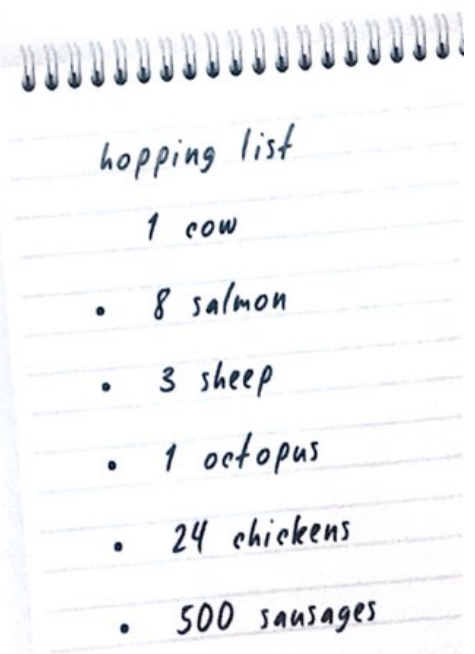 hopping list
1 cow
• 8 salmon
• 3 sheep
• 1 octopus
• 24 chickens
• 500 sausages